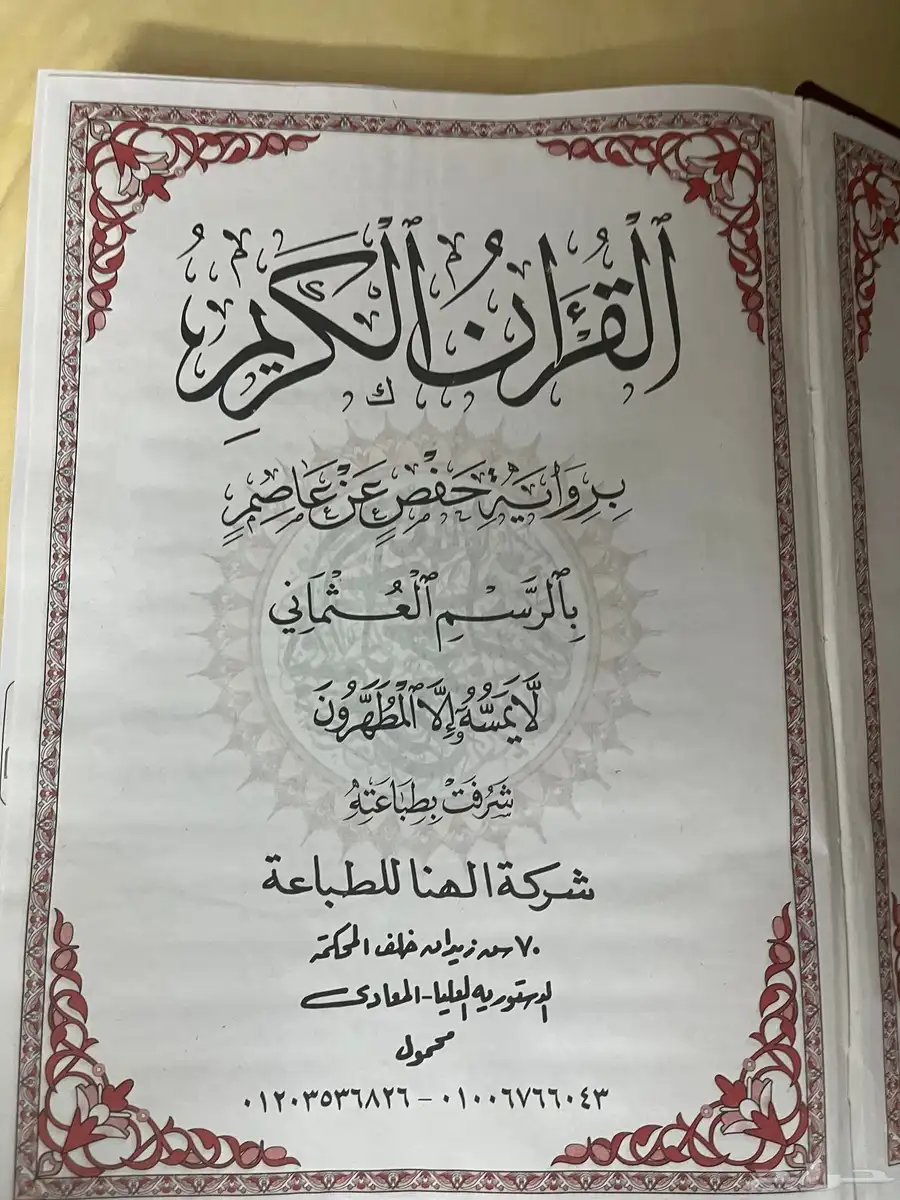 ٱلْقُرْءَانُ ٱلْكَرِيمُ
بِرِوَايَةِ حَفْصٍ عَنْ عَاصِمٍ
بِٱلرَّسْمِ ٱلْعُثْمَانِي
لَّا يَمَسُّهُۥٓ إِلَّا ٱلْمُطَهَّرُونَ
شَرُفَتْ بِطِبَاعَتِهِ
شركة الهنا للطباعة
٧٠ ش زيدان خلف المحكمة
الدستورية العليا - المعادى
محمول
٠١٠٠٦٧٦٦٠٤٣ - ٠١٢٠٣٥٣٦٨٢٦